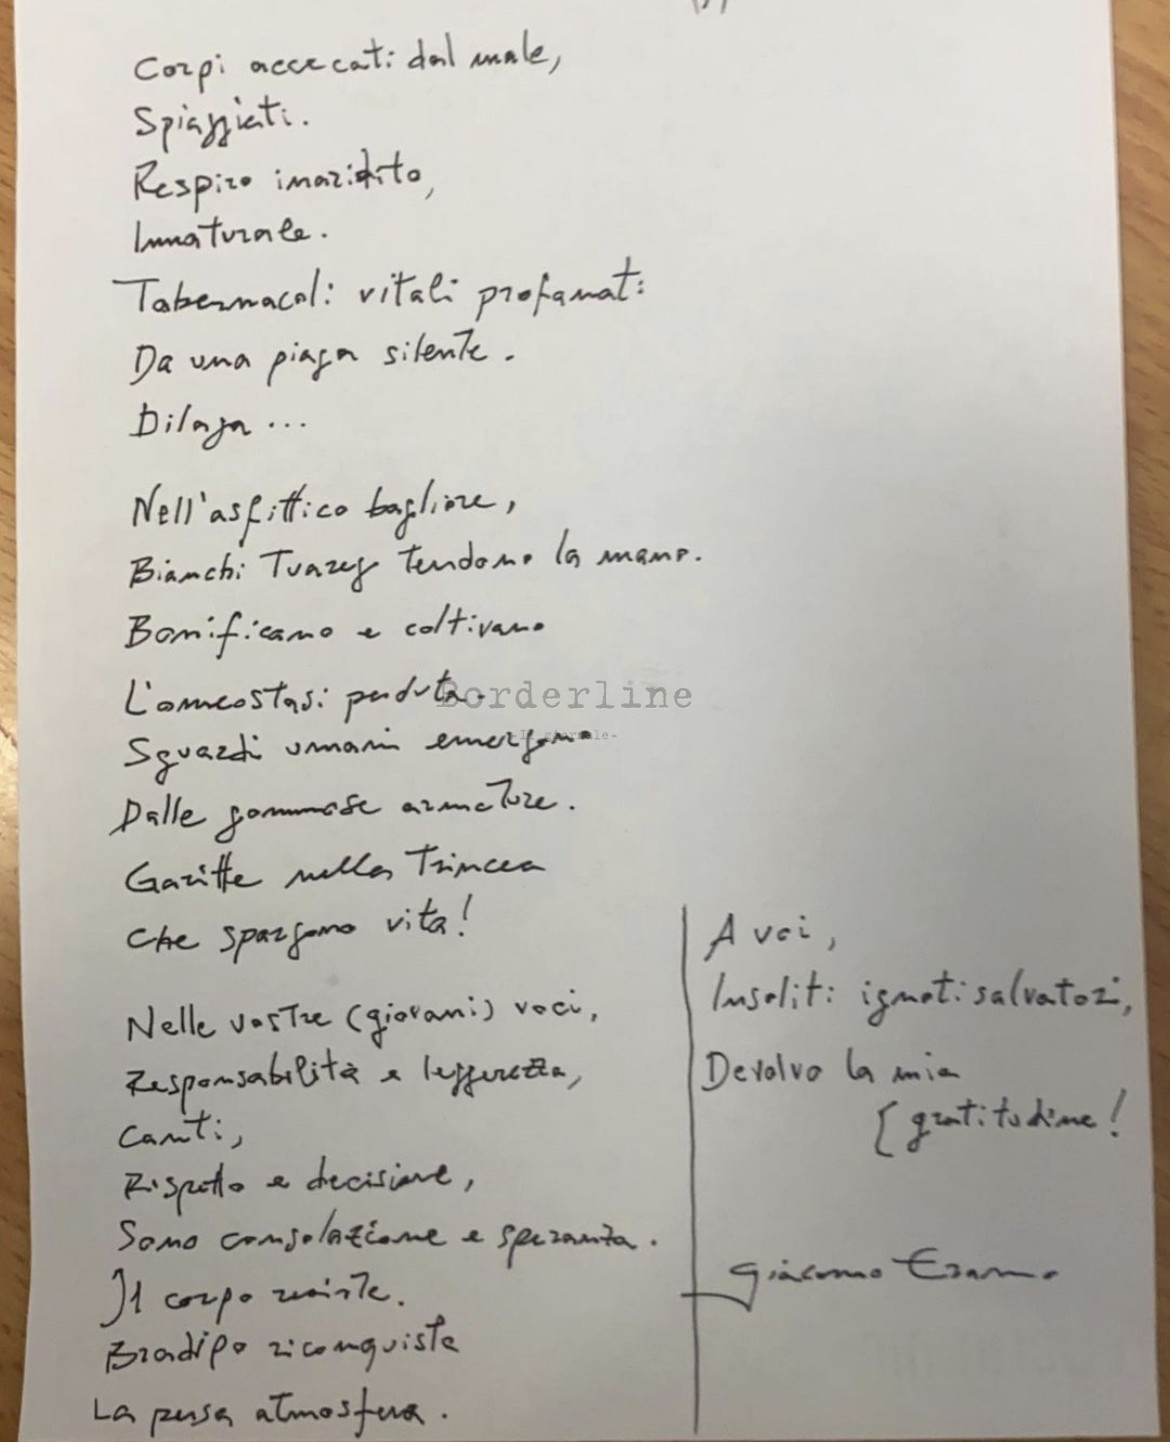 Corpi accecati dal male,
Spiaggiati.
Respiro inaridito,
Innaturale.
Tabernacoli vitali profanati
Da una piaga silente.
Dilaga...
Nell'asfittico bagliore,
Bianchi Tuareg tendono la mano.
Bonificano e coltivano
L'omeostasi perduta.
Borderline
Sguardi umani emergono
-Il giornale-
Dalle gommose armature.
Garitte nella Trincea
Che spargono vita!
Nelle vostre (giovani) voci,
Responsabilità e leggerezza,
Canti,
Rispetto e decisione,
Sono consolazione e speranza.
Il corpo resiste.
Bradipo riconquista
La persa atmosfera.
A voi,
Insoliti ignoti salvatori,
Devolvo la mia
[gratitudine!
Giacomo